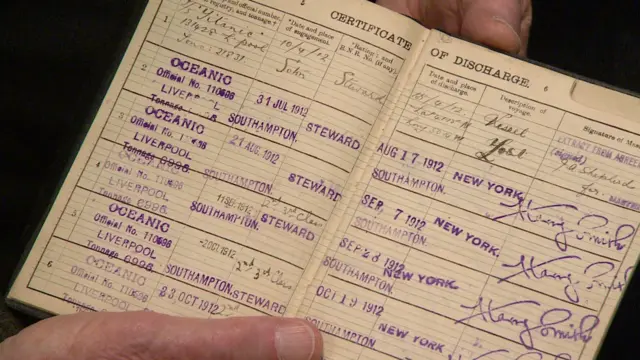 CERTIFICATE
of number, registry, and tonnage.†
*Date and place of engagement.
*Rating; and R.N.R. No. (if any).
1
Titanic
131428 L'pool
Tons 21831
10/4/12
Soton
Steward
2
OCEANIC
Official No. 110596
LIVERPOOL
Tonnage 6996
31 JUL 1912
SOUTHAMPTON.
STEWARD
3
OCEANIC
LIVERPOOL
Tonnage 6996
21 AUG 1912
SOUTHAMPTON.
STEWARD
2nd 3rd Class
4
OCEANIC
LIVERPOOL
Tonnage 6996
11 SEP 1912
SOUTHAMPTON.
STEWARD
5
OCEANIC
Official No. 110596
LIVERPOOL
Tonnage 6996
2 OCT 1912
SOUTHAMPTON.
STEWARD
2nd 3rd Class
6
OCEANIC
Official No. 110596
LIVERPOOL
Tonnage 6996
23 OCT 1912
SOUTHAMPTON.
STEWARD
2nd
OF DISCHARGE.
Date and place of discharge.
Description of voyage.
Signature of
Vessel
Lost
EXTRACT FROM AGREE
(signed)
for.
AUG 17 1912
SOUTHAMPTON.
NEW YORK.
SEP. 7 1912
SOUTHAMPTON.
NEW YORK.
Harry Smith
SEP 28 1912
SOUTHAMPTON.
NEW YORK.
Harry Smith
OCT 19 1912
SOUTHAMPTON
NEW YORK.
Harry Smith